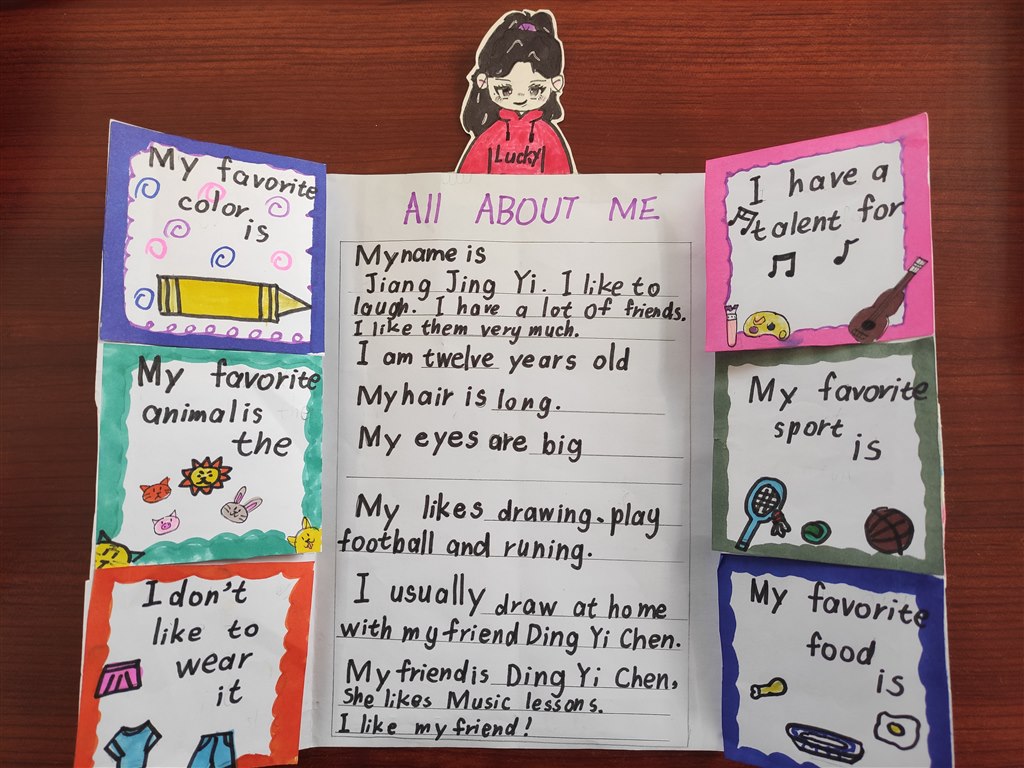 Lucky
All ABOUT ME
My name is
Jiang Jing Yi. I like to
laugh. I have a lot of friends.
I like them very much.
I am twelve years old
My hair is long.
My eyes are big
My likes drawing. play
football and runing.
I usually draw at home
with my friend Ding Yi Chen.
My friend is Ding Yi Chen,
She likes Music lessons.
I like my friend!
My favorite
color
is
My favorite
animal is
the
I don't
like to
wear
it
I have a
talent for
My favorite
sport
is
My favorite
food
is